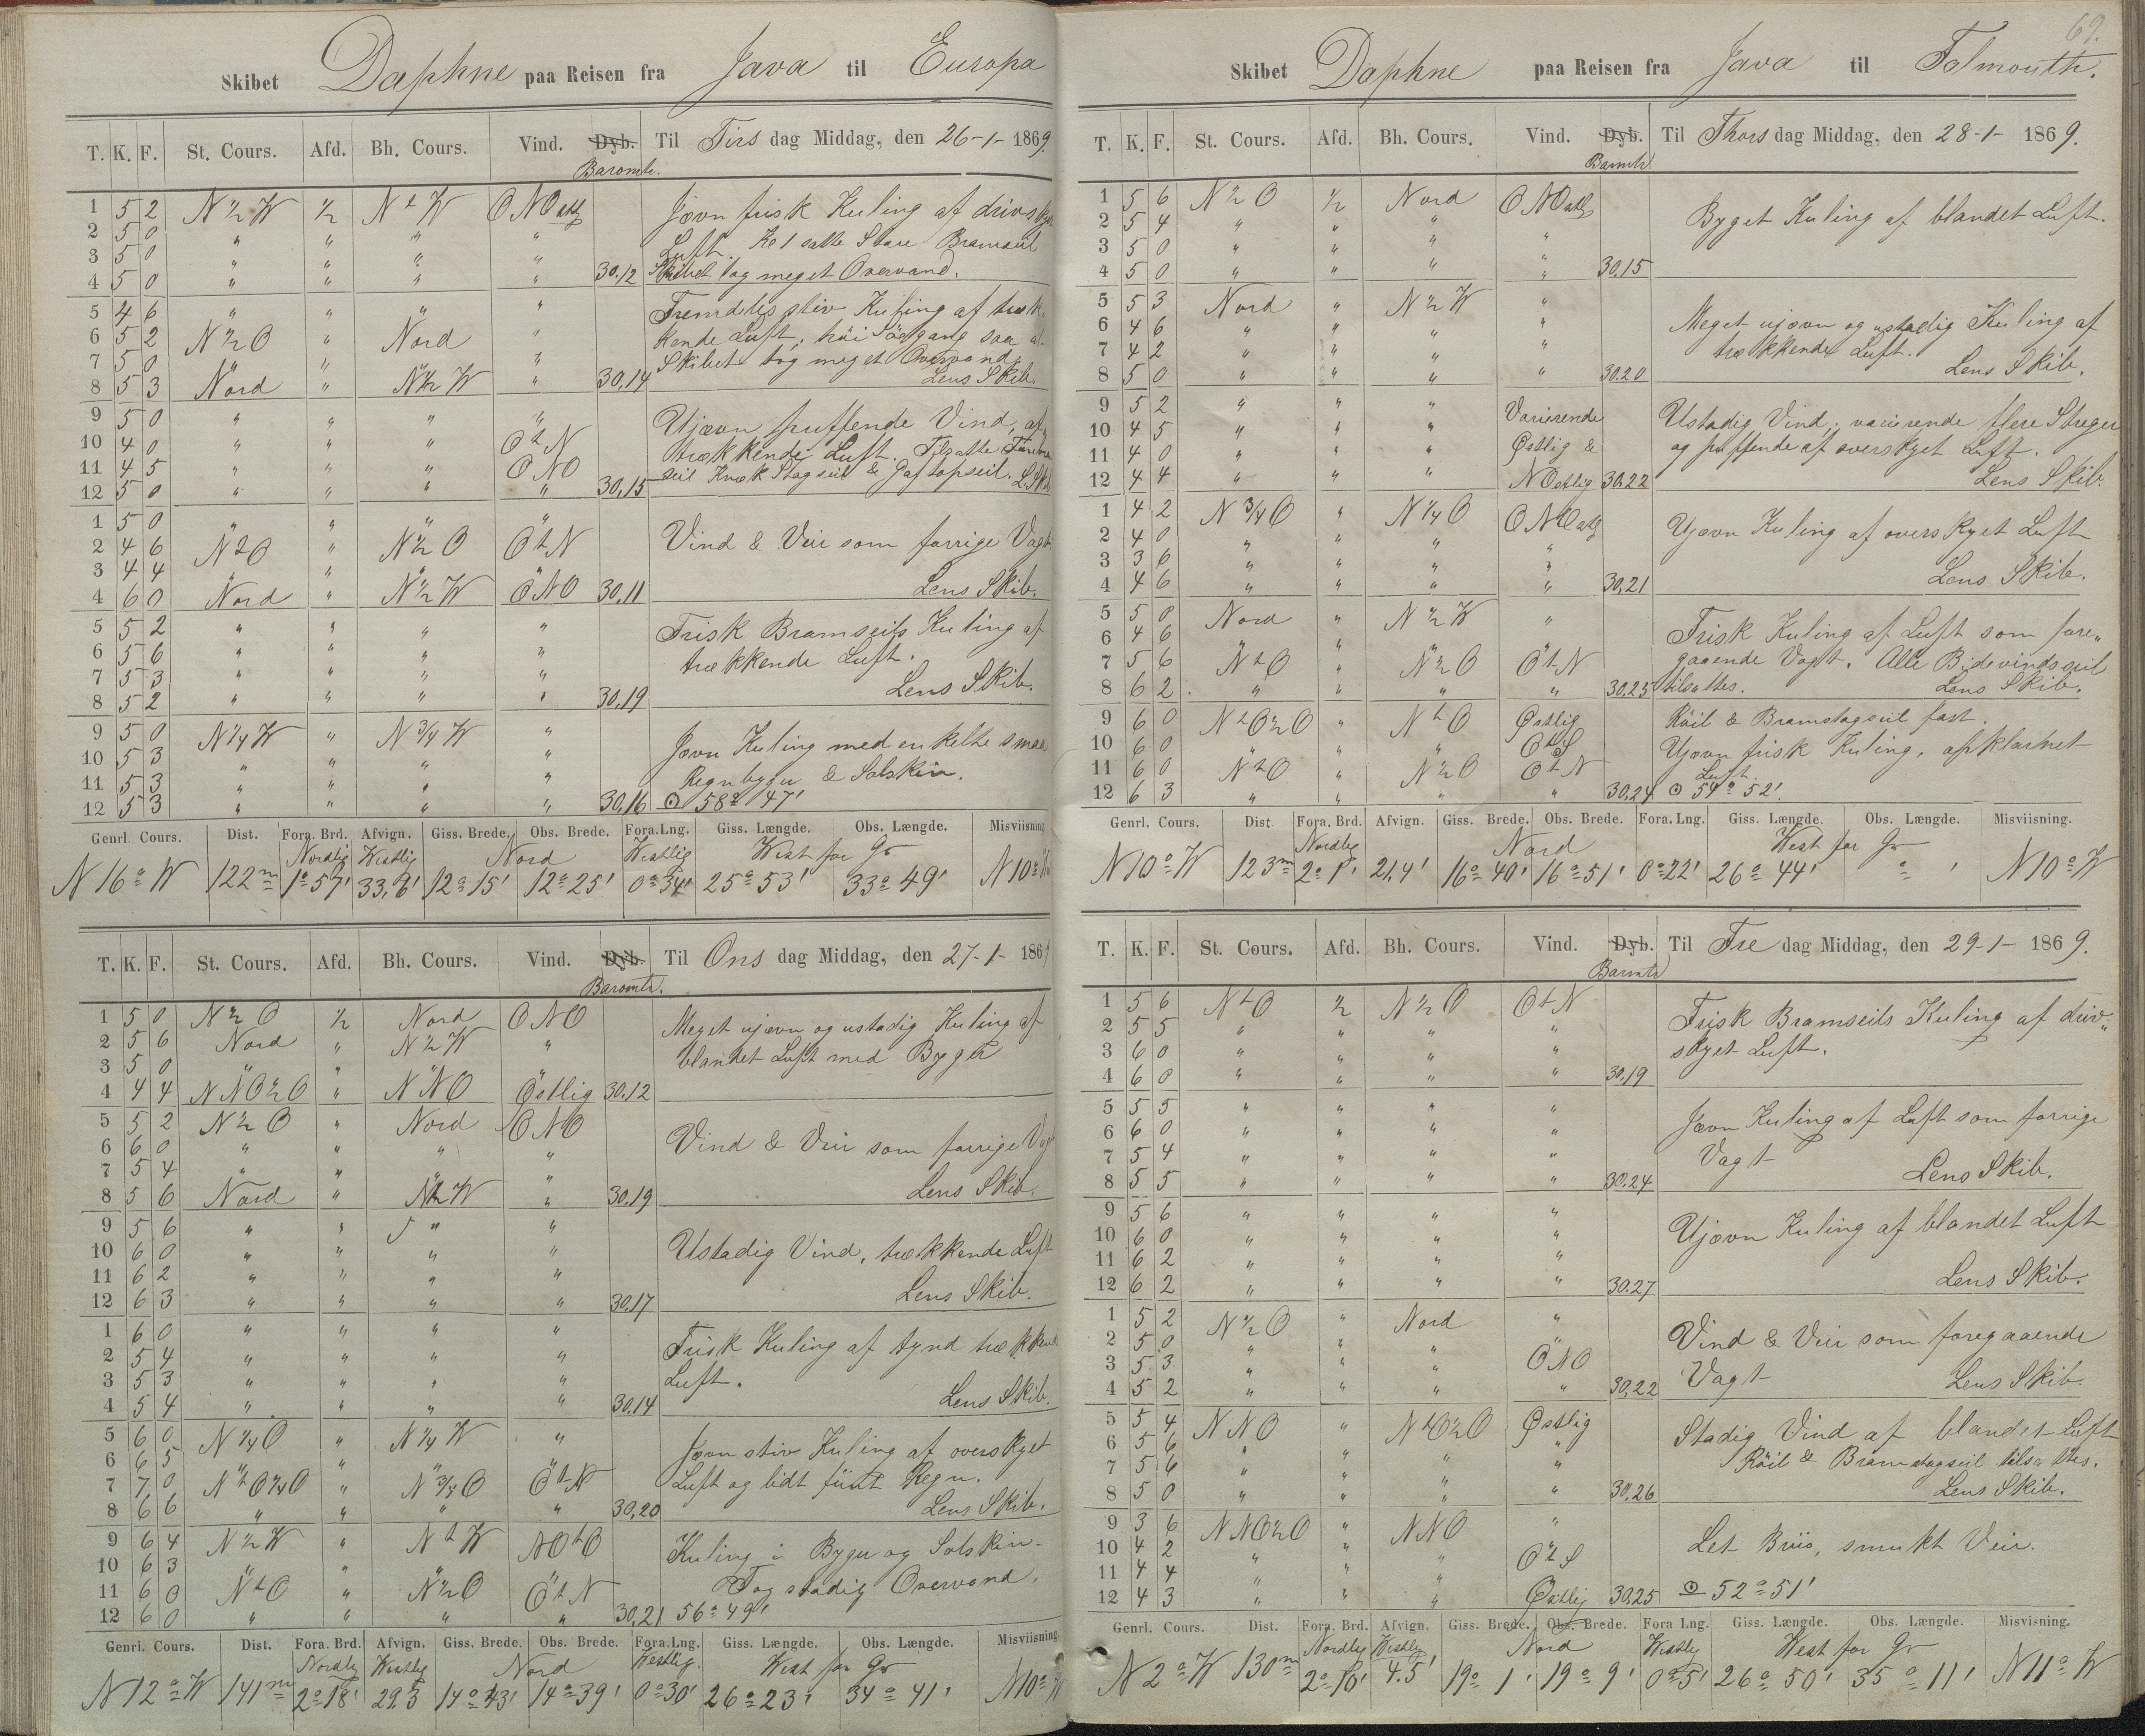 Skibet Daphne paa Reisen fra Java til Europa
T. K. F. St. Cours. Afd. Bh. Cours. Vind. Dyb. Til Tirs dag Middag, den 26-1- 1869.
Baromtr.
1 5 2 N ½ W ½ N t W ONOstlg Jævn frisk Kuling af drivskyet
2 5 0 " " " " Luft. Kl 1 satte Store Bramseil
3 5 0 " " " "
4 5 0 " " " " 30,12 Skibet tog meget Overvand.
5 4 6 " " " " Fremdeles stiv Kuling af træk-
6 5 2 N ½ O " Nord " kende Luft, höi Södgang saa at
7 5 0 " " " " Skibet tog meget Overvand.
8 5 3 Nord " N ½ W " 30,14 Lens Skib.
9 5 0 " " " " Ujævn puffende Vind, af
10 4 0 " " " O t N trækkende Luft. Tilsatte
11 4 5 " " " ONO seil Knæk Stagseil & Gaftopseil. L. Skib
12 5 0 " " " " 30,15
1 5 0 " " " "
2 4 6 N t O " N ½ O O t N Vind & Veir som forrige Vagt
3 4 4 " " " "
4 6 0 Nord " N ½ W ONO 30,11 Lens Skib.
5 5 2 " " " " Frisk Bramseils Kuling af
6 5 6 " " " " trækkende Luft.
7 5 3 " " " "
8 5 2 " " " " 30,19 Lens Skib.
9 5 0 N ¼ W N ¾ W " Jævn Kuling med enkelte smaa
10 5 3 " " " " Regnbyger & Solskin.
11 5 3 " " " "
12 5 3 " " " " 30,16 ⊙ 58° 47'
Genrl. Cours. Dist. Fora. Brd. Afvign. Giss. Brede. Obs. Brede. Fora. Lng. Giss. Længde. Obs. Længde. Misviisning
Nordlig Westlig Nord Westlig West for Gr
N 16° W 122m 1° 57' 33,6' 12° 15' 12° 25' 0° 34' 25° 53' 33° 49' N 10° W
T. K. F. St. Cours. Afd. Bh. Cours. Vind. Dyb. Til Ons dag Middag, den 27-1- 1869
Baromtr.
1 5 0 N ½ O ½ Nord ONO Meget ujævn og ustadig Kuling af
2 5 6 Nord " N ½ W " blandet Luft med Byger
3 5 0 " " " "
4 4 4 NNO ½ O " NNO Östlig 30.12
5 5 2 N ½ O " Nord ONO
6 6 0 " " " " Vind & Veir som forrige Vagt
7 5 4 " " " "
8 5 6 Nord " N ½ W " 30.19 Lens Skib.
9 5 6 " " " "
10 6 0 " " " " Ustadig Vind, trækkende Luft
11 6 2 " " " "
12 6 3 " " " " 30.17 Lens Skib.
1 6 0 " " " "
2 5 4 " " " " Frisk Kuling af tynd trækkende
3 5 3 " " " " Luft.
4 5 4 " " " " 30.14 Lens Skib.
5 6 0 N ¼ O " N ¼ W " Jævn stiv Kuling af overskyet
6 6 5 " " " " Luft og lidt fiint Regn.
7 7 0 N t O ¼ O " N ¾ O O t N
8 6 6 " " " " 30,20 Lens Skib.
9 6 4 N ½ W " N t W NO t O Kuling i Byger og Solskin-
10 6 3 " " " " Tog stadig Overvand.
11 6 0 N t O " N ½ O O t N
12 6 0 " " " " 30,21 56° 49'
Genrl. Cours. Dist. Fora. Brd. Afvign. Giss. Brede. Obs. Brede. Fora. Lng. Giss. Længde. Obs. Længde. Misviisning
Nordlig Westlig Nord Westlig. West for Gr
N 12° W 141m 2° 18' 29.3 14° 43' 14° 39' 0° 30' 26° 23' 34° 41' N 10° W
69.
Skibet Daphne paa Reisen fra Java til Falmouth.
T. K. F. St. Cours. Afd. Bh. Cours. Vind. Dyb. Til Thors dag Middag, den 28-1- 1869.
Barmtr
1 5 6 N ½ O ½ Nord ONOstlg
2 5 4 " " " Byget Kuling af blandet Luft.
3 5 0 " " " "
4 5 0 " " " " 30.15
5 5 3 Nord " N ½ W "
6 4 6 " " " " Meget ujævn og ustadig Kuling af
7 4 2 " " " " trækkende Luft.
8 5 0 " " " " 30.20 Lens Skib.
9 5 2 " " " Varierende Ustadig Vind, varierende flere Streger
10 4 5 " " " Østlig & og puffende af overskyet Luft.
11 4 0 " " "
12 4 4 " " " NOstlig 30.22 Lens Skib.
1 4 2 N ¾ O " N ¼ O ONOstlg
2 4 0 " " " " Ujævn Kuling af overskyet Luft
3 3 6 " " " "
4 4 6 " " " " 30,21 Lens Skib.
5 5 0 Nord " N ½ W "
6 4 6 " " " Frisk Kuling af Luft som fore„
7 5 6 N t O " N ½ O O t N gaaende Vagt. Alle Bidevindsseil
8 6 2 " " " " 30.25 tilsattes. Lens Skib.
9 6 0 N t O ½ O " N t O Østlig Röil & Bramstagseil fast.
10 6 0 " " " O t S Ujævn frisk Kuling, opklarnet
11 6 0 N t O " N ½ O O t N Luft.
12 6 3 " " " " 30.24 ⊙ 54° 52'.
Genrl. Cours. Dist Fora. Brd. Afvign. Giss. Brede. Obs. Brede. Fora. Lng. Giss. Længde. Obs. Længde. Misviisning.
Nordlig Nord West for Gr
N 10° W 123m 2° 1' 21,4' 16° 40' 16° 51' 0° 22' 26° 44' ° ' N 10° W
T. K. F. St. Cours. Afd. Bh. Cours. Vind. Dyb. Til Fre dag Middag, den 29-1- 1869.
Barmtr
1 5 6 N t O ½ N ½ O O t N Frisk Bramseils Kuling af driv„
2 5 5 " " " " skyet Luft.
3 6 0 " " " "
4 6 0 " " " " 30.19
5 5 5 " " " " Jævn Kuling af Luft som forrige
6 6 0 " " " "
7 5 4 " " " " Vagt
8 5 5 " " " " 30.24 Lens Skib.
9 5 6 " " " "
10 6 0 " " " " Ujævn Kuling af blandet Luft
11 6 2 " " " "
12 6 2 " " " " 30.27 Lens Skib.
1 5 2 N ½ O " Nord "
2 5 0 " " " " Vind & Veir som foregaaende
3 5 3 " " " ONO Vagt
4 5 2 " " " " 30,22 Lens Skib.
5 5 4 NNO " N t O ½ O Østlig Stadig Vind af blandet Luft
6 5 6 " " " " Röil & Bramstagseil tilsattes.
7 5 6 " " " "
8 5 0 " " " " 30,26 Lens Skib.
9 3 6 NNO ½ O " NNO "
10 4 2 " " " O t S Let Briis, smukt Veir.
11 4 4 " " "
12 4 3 " " " Østlig 30.25 ⊙ 52° 51'
Genrl. Cours. Dist. Fora. Brd. Afvign. Giss. Brede. Obs. Brede. Fora Lng. Giss. Længde. Obs. Længde. Misvisning.
Nordlig Westlig Nord Westlig West for Gr
N 2° W 130m 2° 10' 4.5' 19° 1' 19° 9' 0° 5' 26° 50' 35° 11' N 11° W